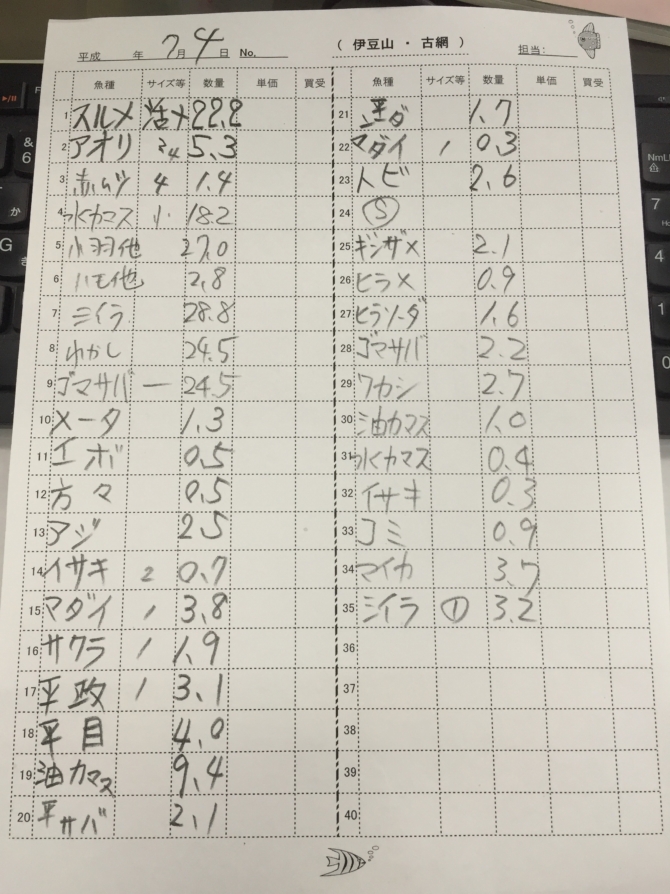 平成 年 7月 4日 No. ( 伊豆山 ・ 古網 ) 担当:
魚種 サイズ等 数量 単価 買受
1 スルメ 活〆 22.2
2 アオリ 3/4 5.3
3 赤ムツ 4 1.4
4 水カマス 小 18.2
5 小羽他 27.0
6 ハモ他 2.8
7 ミイラ 28.8
8 わかし 24.5
9 ゴマサバ ー 24.5
10 メータ 1.3
11 エボ 0.5
12 方々 0.5
13 アジ 2.5
14 イサキ 2 0.7
15 マダイ 1 3.8
16 サワラ 1 1.9
17 平政 1 3.1
18 平目 4.0
19 油カマス 9.4
20 平サバ 2.1
魚種 サイズ等 数量 単価 買受
21 平ダ 1.7
22 マダイ 1 0.3
23 トビ 2.6
24 Ⓢ
25 ギンザメ 2.1
26 ヒラメ 0.9
27 ヒラソーダ 1.6
28 ゴマサバ 2.2
29 ワカシ 2.7
30 油カマス 1.0
31 水カマス 0.4
32 イサキ 0.3
33 ゴミ 0.9
34 マイカ 3.7
35 シイラ ① 3.2
36
37
38
39
40